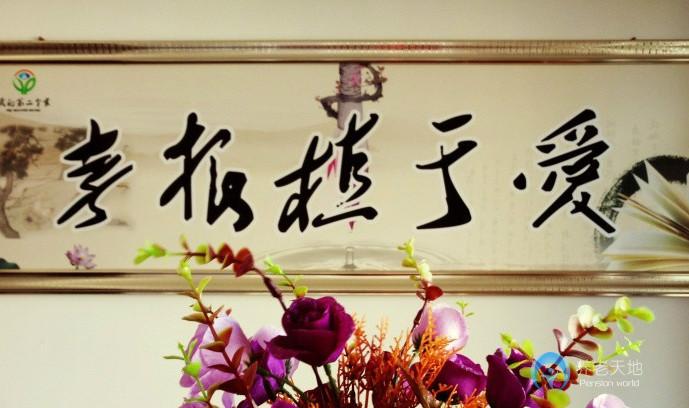 孝报植于爱
养老天地
Pension world